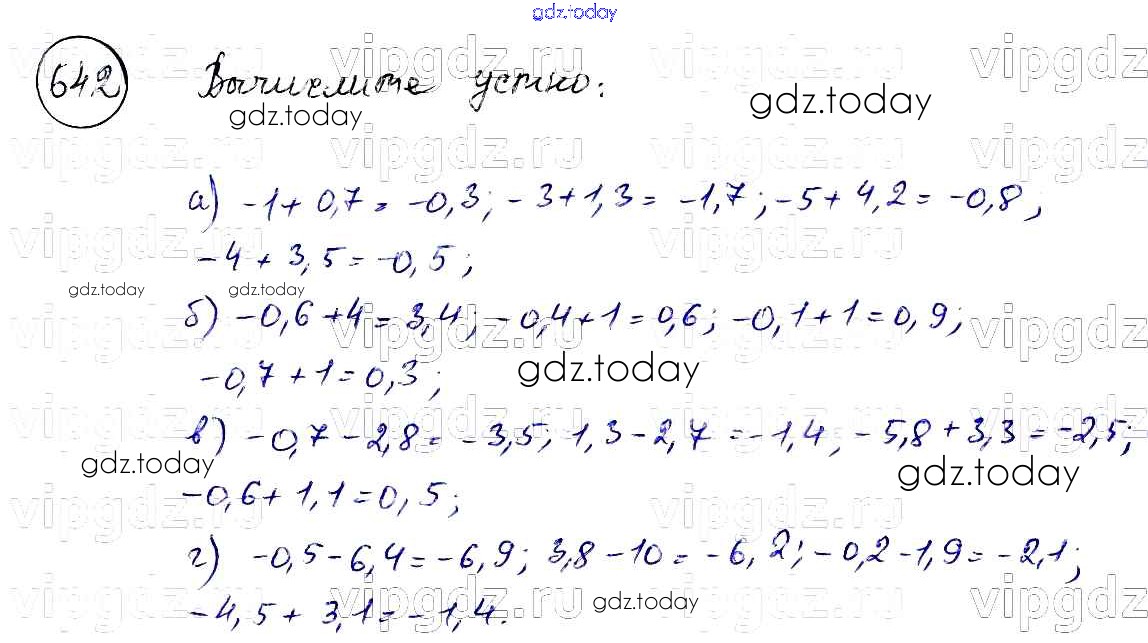 gdz.today
642 Вычислите устно:
а) -1 + 0,7 = -0,3; -3 + 1,3 = -1,7; -5 + 4,2 = -0,8;
-4 + 3,5 = -0,5;
б) -0,6 + 4 = 3,4; -0,4 + 1 = 0,6; -0,1 + 1 = 0,9;
-0,7 + 1 = 0,3;
в) -0,7 - 2,8 = -3,5; 1,3 - 2,7 = -1,4, -5,8 + 3,3 = -2,5;
-0,6 + 1,1 = 0,5;
г) -0,5 - 6,4 = -6,9; 3,8 - 10 = -6,2; -0,2 - 1,9 = -2,1;
-4,5 + 3,1 = -1,4.
vipgdz.ru
gdz.today